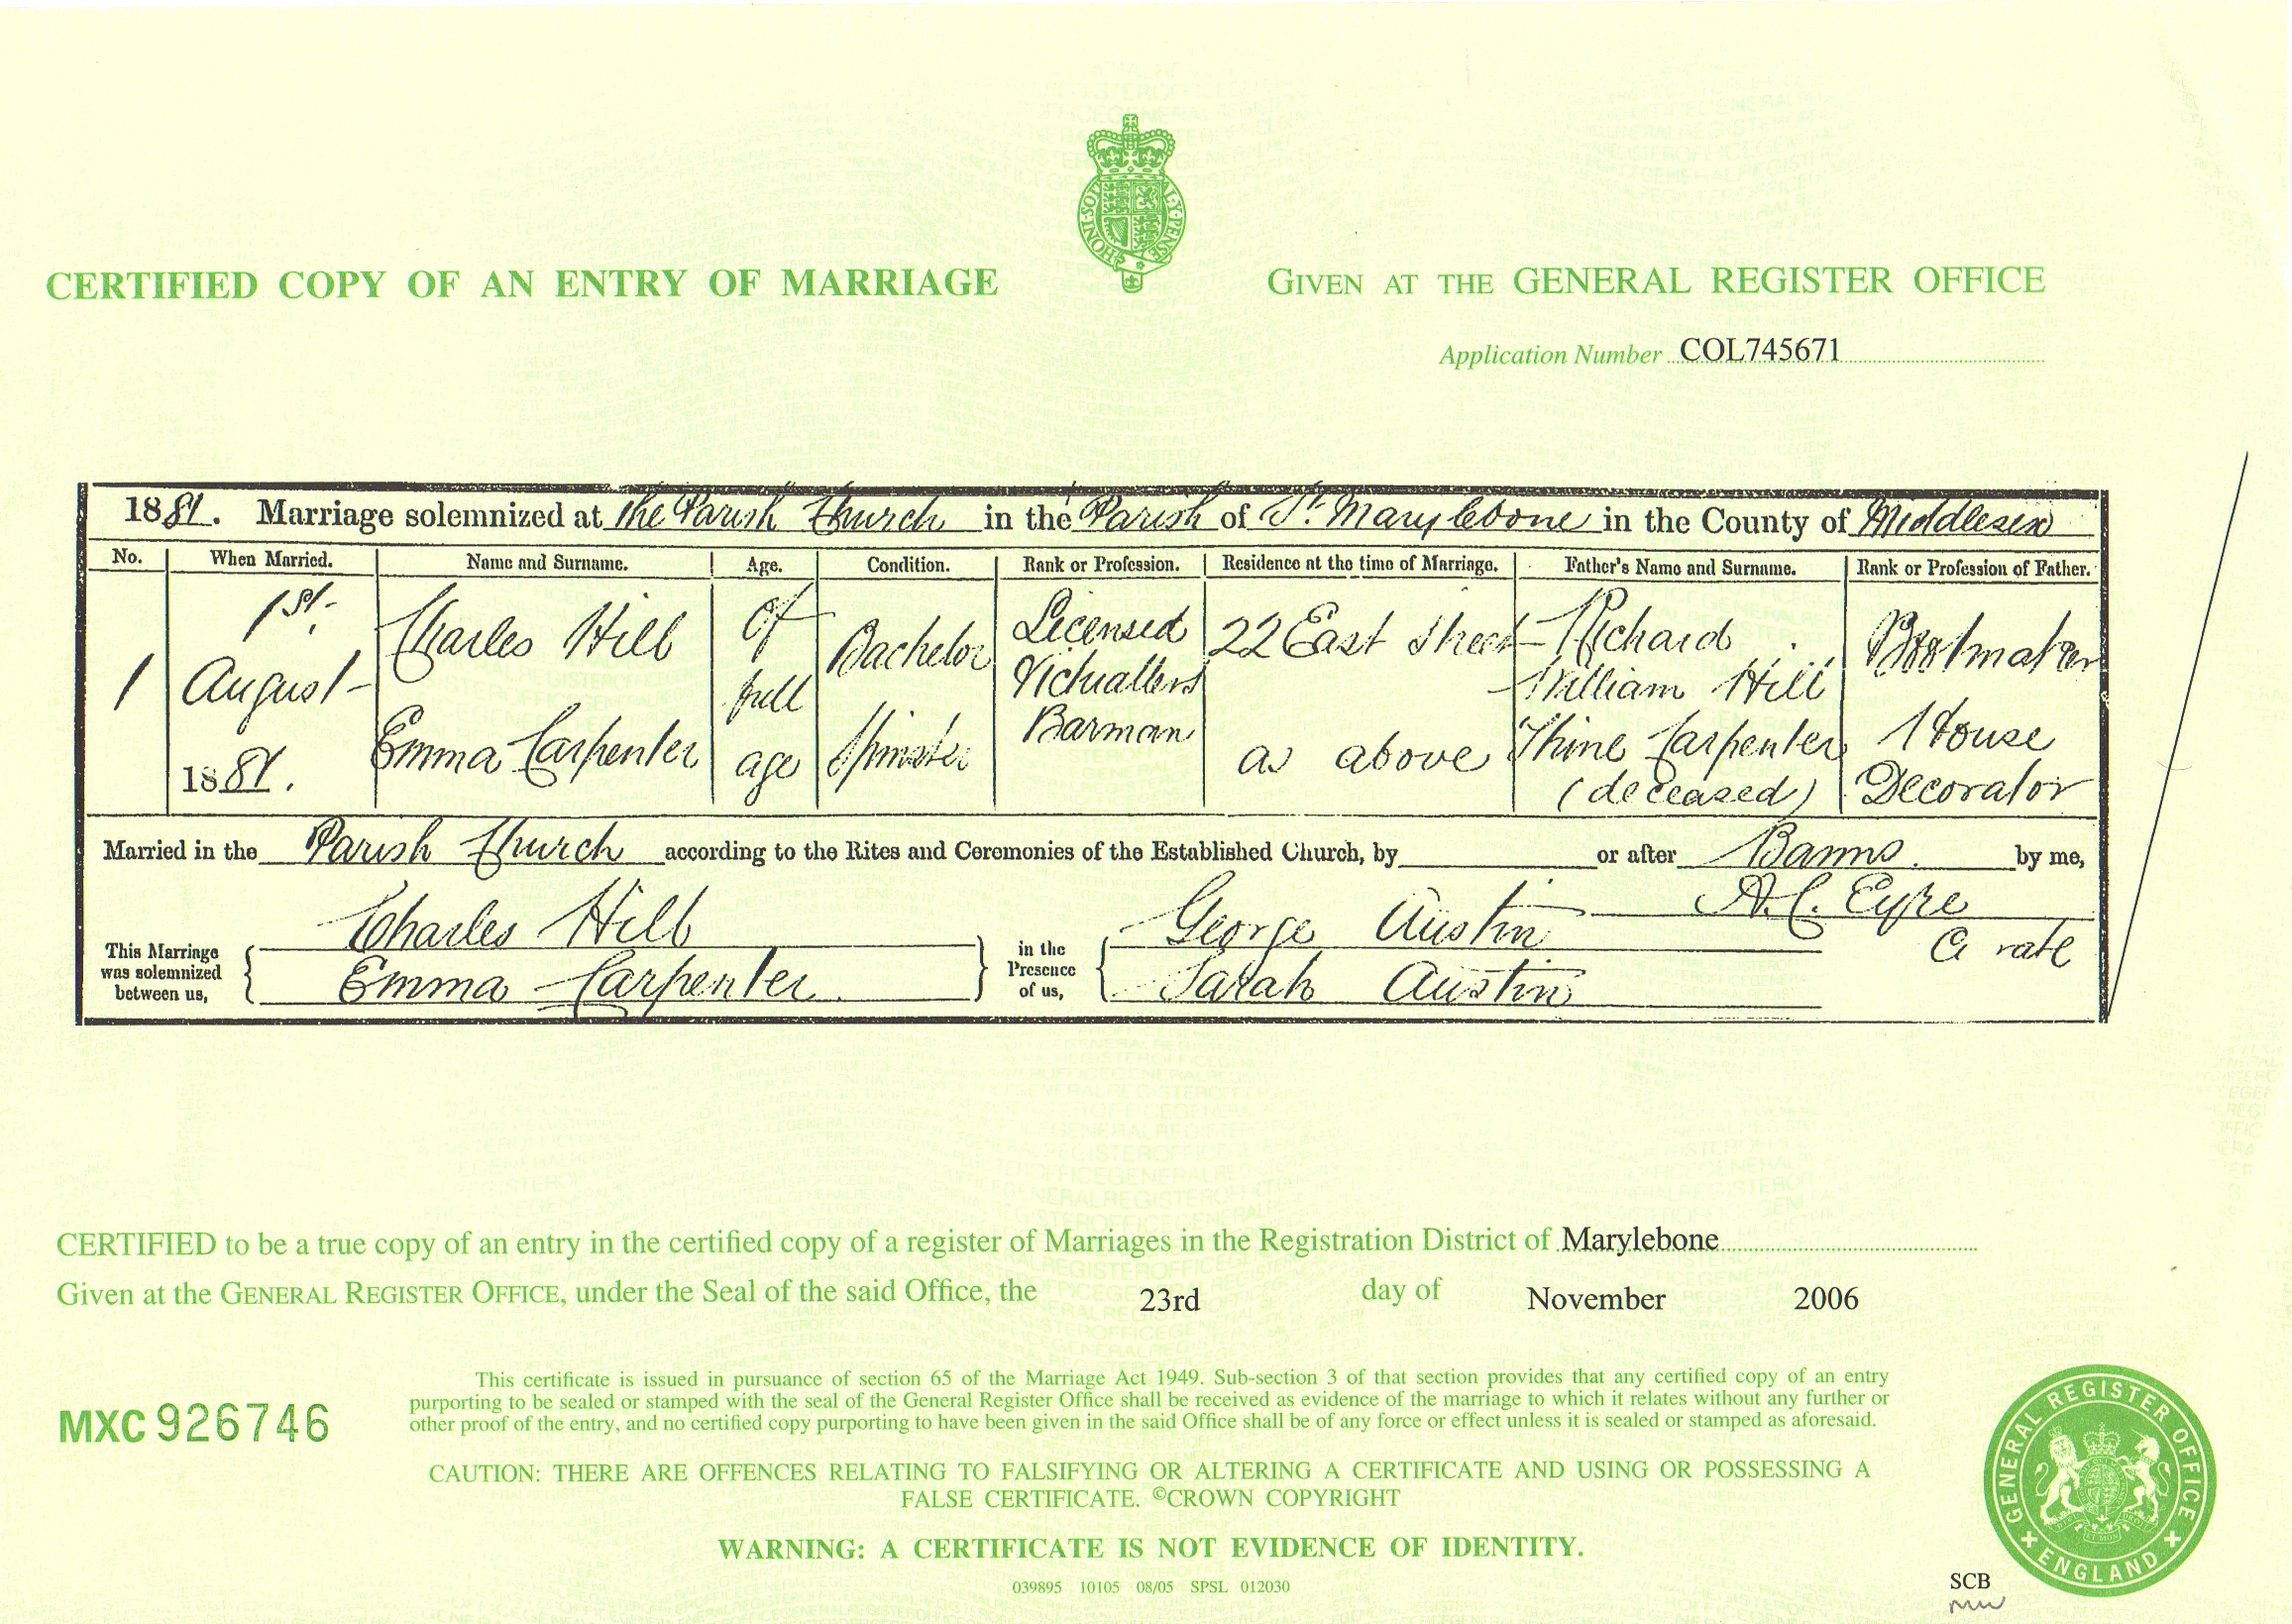 HONI·SOIT
AL·Y·PENSE
CERTIFIED COPY OF AN ENTRY OF MARRIAGE
GIVEN AT THE GENERAL REGISTER OFFICE
Application Number COL745671
1881. Marriage solemnized at the Parish Church in the Parish of St. Marylebone in the County of Middlesex
No. When Married. Name and Surname. Age. Condition. Rank or Profession. Residence at the time of Marriage. Father's Name and Surname. Rank or Profession of Father.
1 1st. August 1881. Charles Hill Of full age Bachelor Licensed Victuallers Barman 22 East Street Richard William Hill Bootmaker
Emma Carpenter Spinster as above Thine Carpenter (deceased) House Decorator
Married in the Parish Church according to the Rites and Ceremonies of the Established Church, by or after Banns. by me,
This Marriage was solemnized between us, Charles Hill Emma Carpenter in the Presence of us, George Austin Sarah Austin A.C. Eyre
C rate
CERTIFIED to be a true copy of an entry in the certified copy of a register of Marriages in the Registration District of Marylebone
Given at the GENERAL REGISTER OFFICE, under the Seal of the said Office, the 23rd day of November 2006
MXC 926746
This certificate is issued in pursuance of section 65 of the Marriage Act 1949. Sub-section 3 of that section provides that any certified copy of an entry
purporting to be sealed or stamped with the seal of the General Register Office shall be received as evidence of the marriage to which it relates without any further or
other proof of the entry, and no certified copy purporting to have been given in the said Office shall be of any force or effect unless it is sealed or stamped as aforesaid.
CAUTION: THERE ARE OFFENCES RELATING TO FALSIFYING OR ALTERING A CERTIFICATE AND USING OR POSSESSING A
FALSE CERTIFICATE. ©CROWN COPYRIGHT
WARNING: A CERTIFICATE IS NOT EVIDENCE OF IDENTITY.
039895 10105 08/05 SPSL 012030
GENERAL REGISTER OFFICE
ENGLAND
SCB